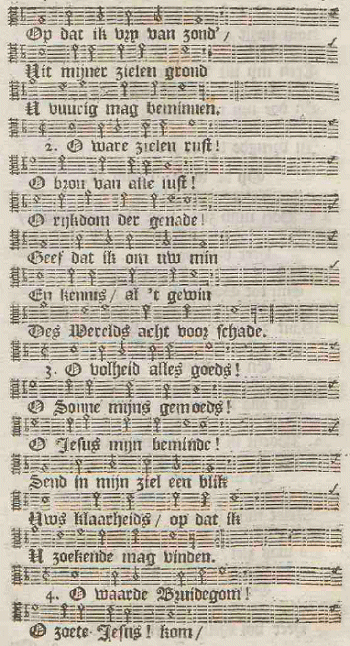 Op dat ik vry van zond'/
Uit mijner zielen grond
U vuurig mag beminnen.
2. O ware zielen rust!
O bron van alle lust!
O rykdom der genade!
Geef dat ik om uw min
En kennis/ al 't gewin
Des Werelds acht voor schade.
3. O volheid alles goeds!
O Sonne mijns gemoeds!
O Jesus mijn beminde!
Send in mijn ziel een blik
Uws klaarheids/ op dat ik
U zoekende mag vinden.
4. O waarde Bruidegom!
O zoete Jesus! kom/